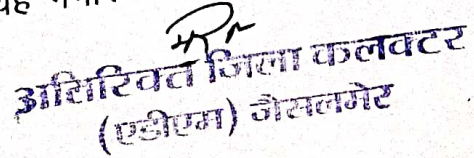 यह
अतिरिक्त जिला कलक्टर
(एडीएम) जैसलमेर